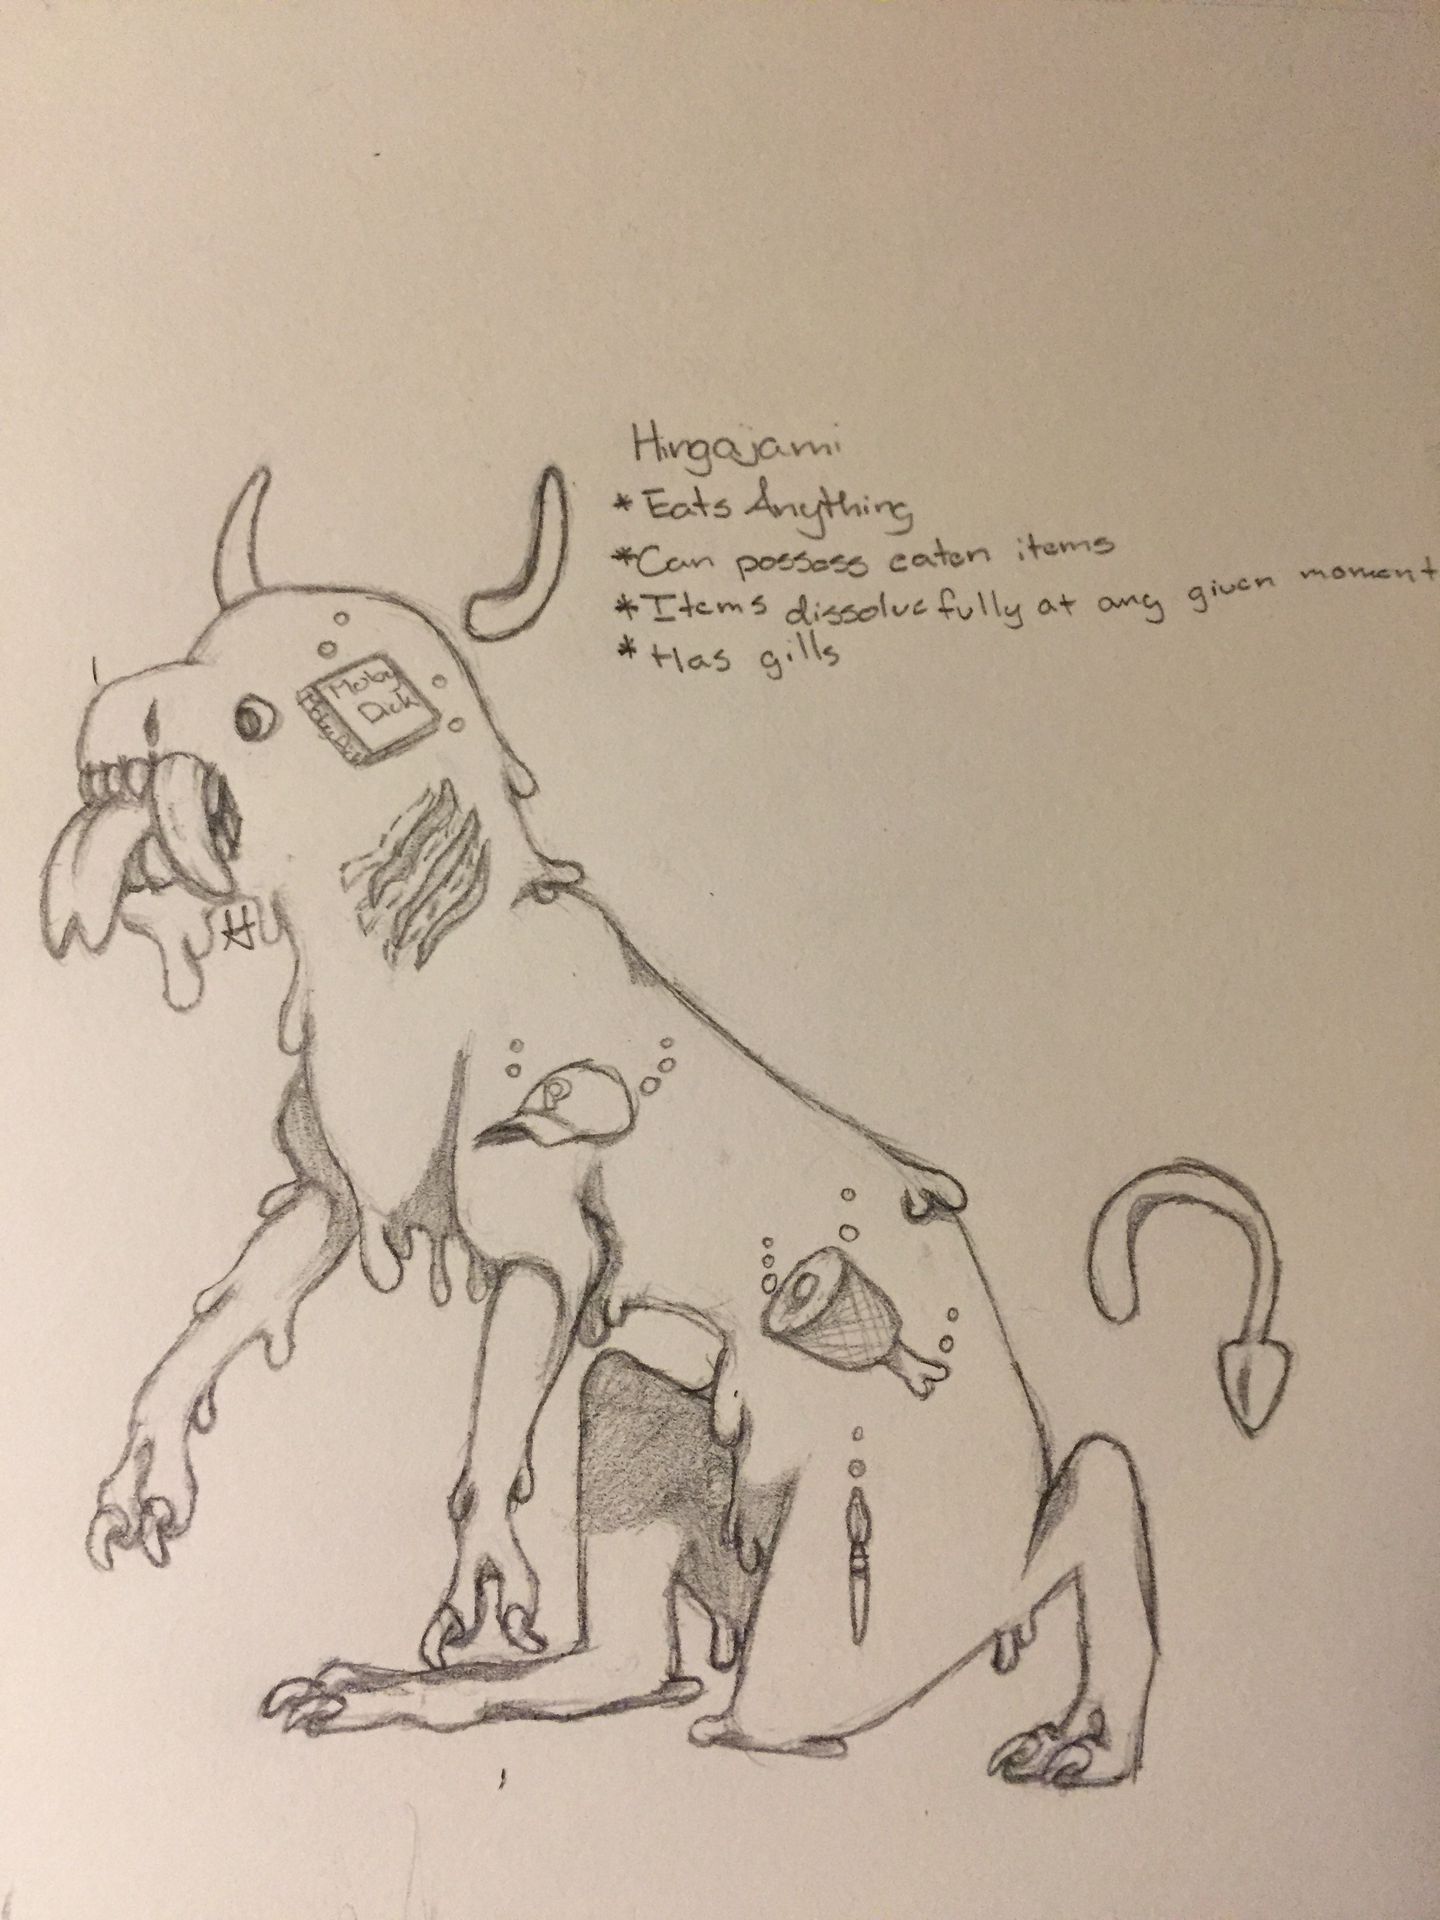 Hingajami
*Eats Anything
*Can possess eaten items
*Items dissolve fully at any given moment
*Has gills
Moby
Dick
Moby Dick
H
P